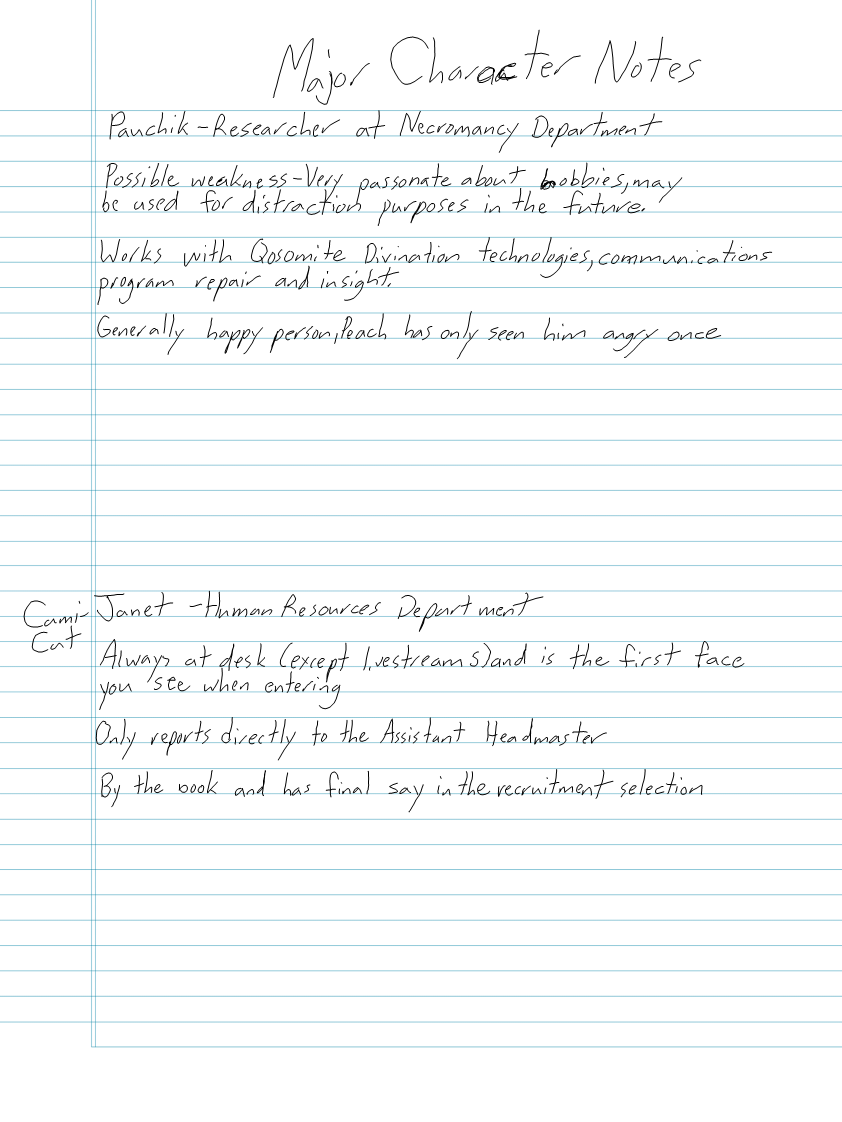 Major Character Notes
Pauchik-Researcher at Necromancy Department
Possible weakness-Very passonate about hobbies, may
be used for distraction purposes in the future.
Works with Qosomite Divination technologies, communications
program repair and insight.
Generally happy person, Peach has only seen him angry once
Cami-Cat
Janet - Human Resources Department
Always at desk (except livestreams) and is the first face
you see when entering
Only reports directly to the Assistant Headmaster
By the book and has final say in the recruitment selection